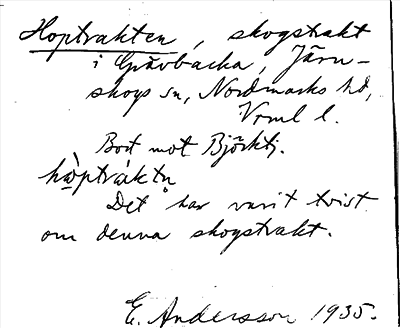 Hoptrakten, skogstrakt
i Grävbacka, Järn-
skogs sn, Nordmarks hd,
Vrml l.
Bort mot Björktj.
hòptráktn
Det har varit tvist
om denna skogstrakt.
E. Andersson 1935.